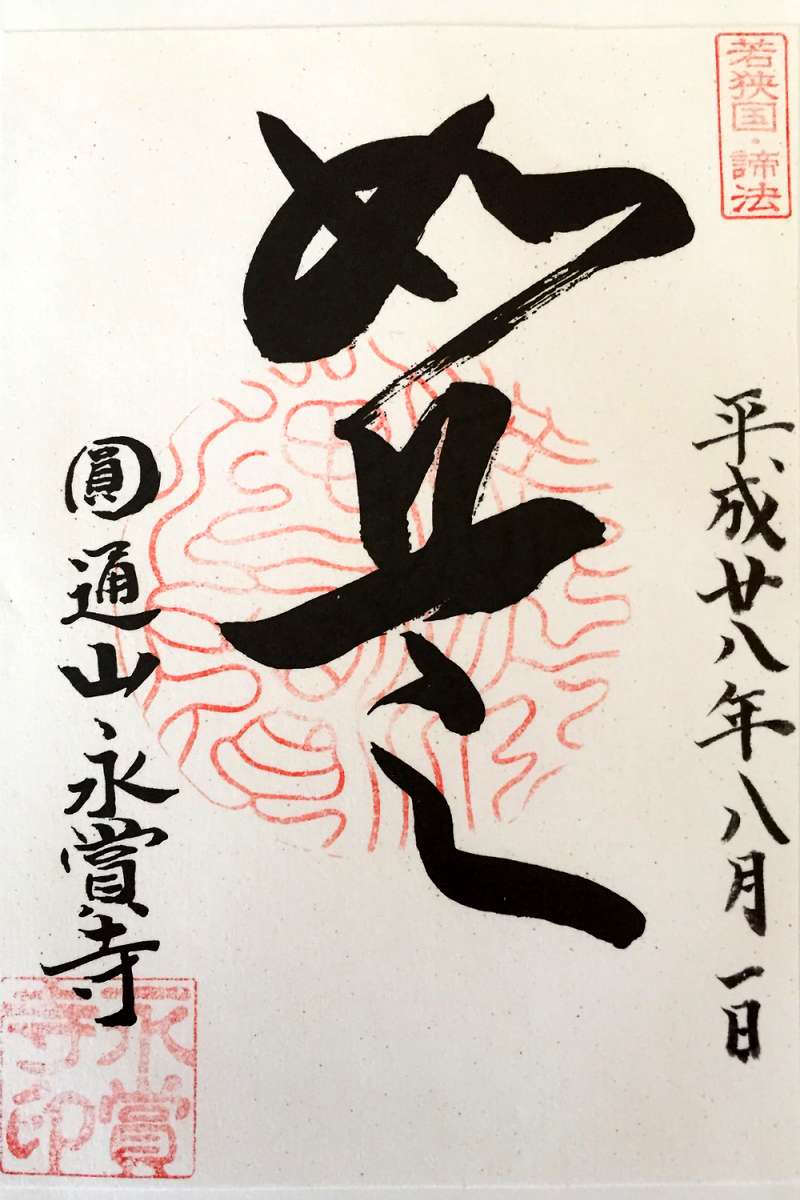 若狭国・諦法
平成廿八年八月一日
如是
圓通山永賞寺
永賞
寺印